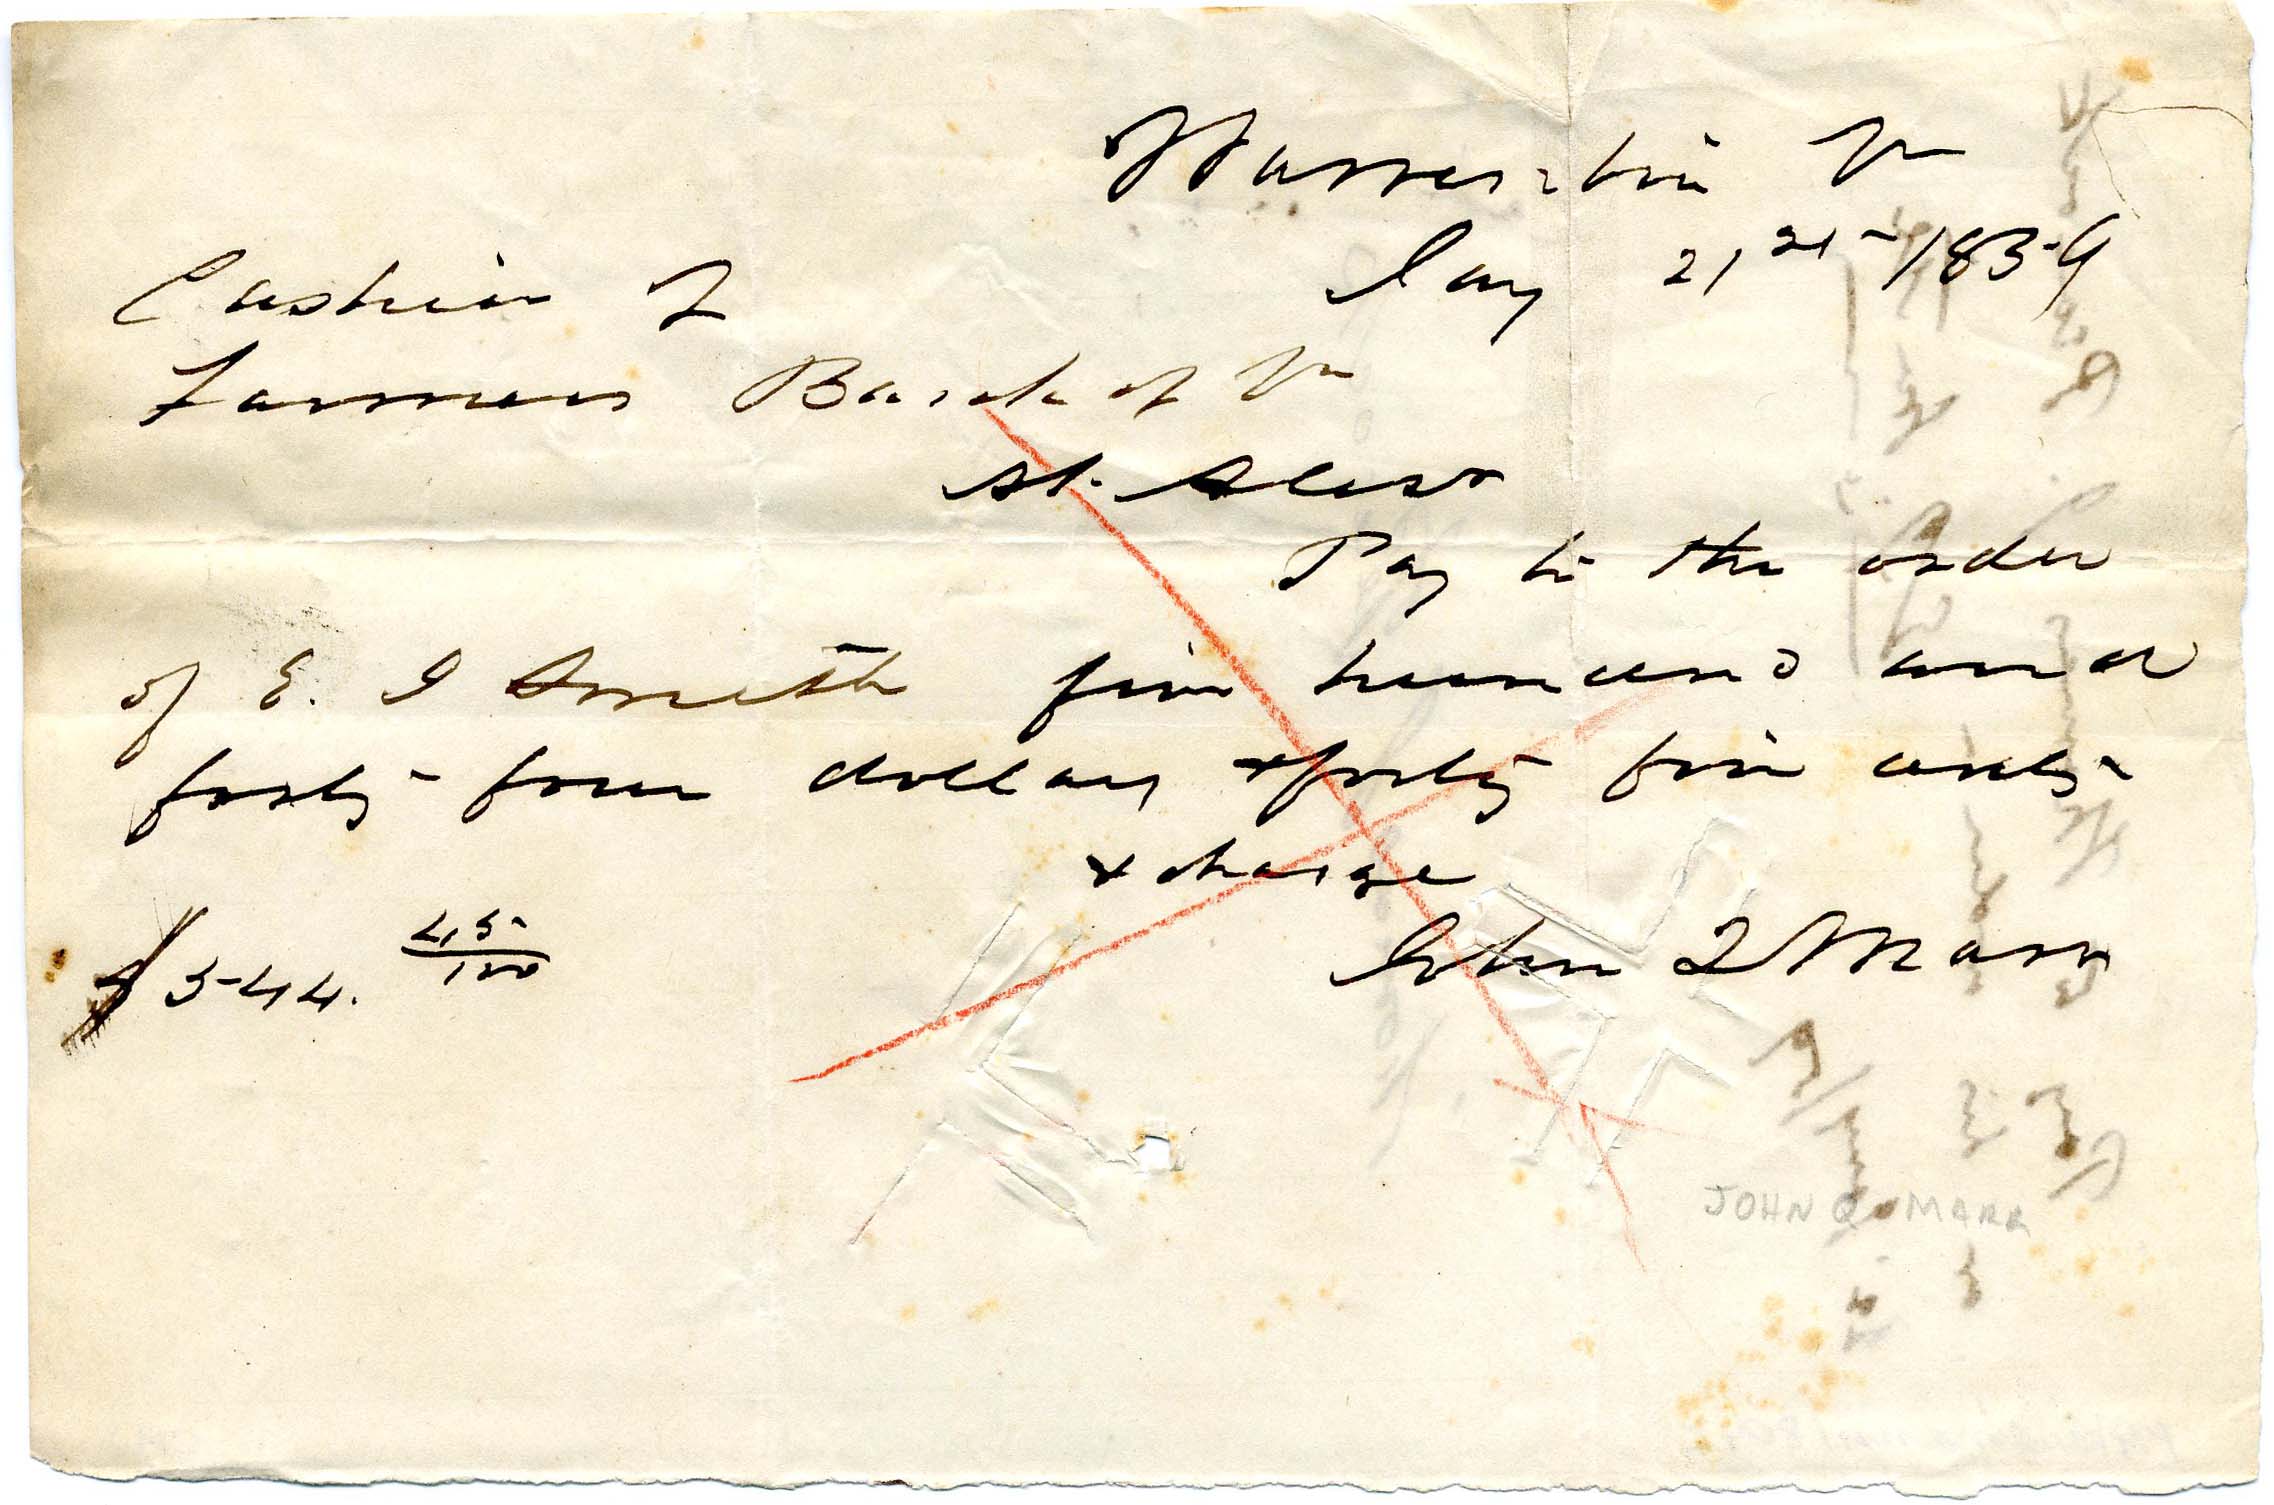 Warrenton Va
Jany 21st 1859
Cashier of
Farmers Bank of Va
at Alexa
Pay to the order
of E. J Smith five hundred and
forty-four dollars & forty five cents
& charge
$544. 45/100
John Q Marr
JOHN Q MARR